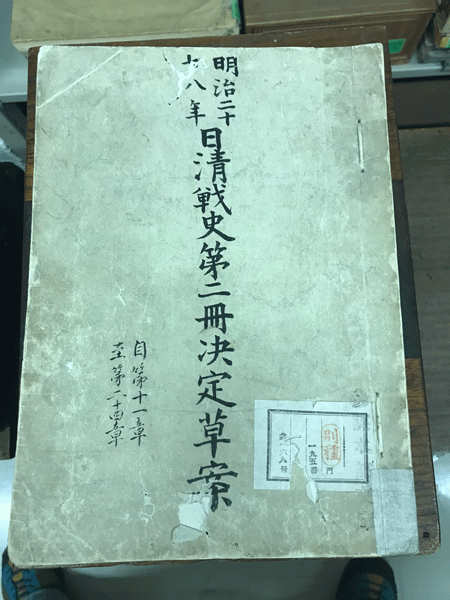 明治二十
七八年
日清戦史第二冊决定草案
自第十一章
至第二十四章
別種
門
一九五番